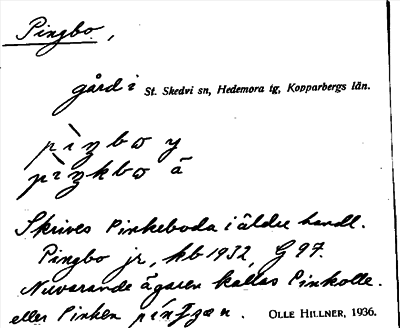 Pingbo,
gård i St. Skedvi sn, Hedemora tg, Kopparbergs län.
pìŋbω y
pìŋkbω ä
Skrives Pinkeboda i äldre handl.
Pingbo jr, kb 1932, G 97.
Nuvarande ägaren kallas Pinkolle.
eller Pinken OLLE HILLNER, 1936.